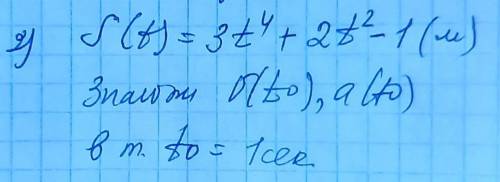 2) S(t) = 3t⁴ + 2t² - 1 (м)
Знайти υ(t0), a(t0)
в т. t0 = 1 сек